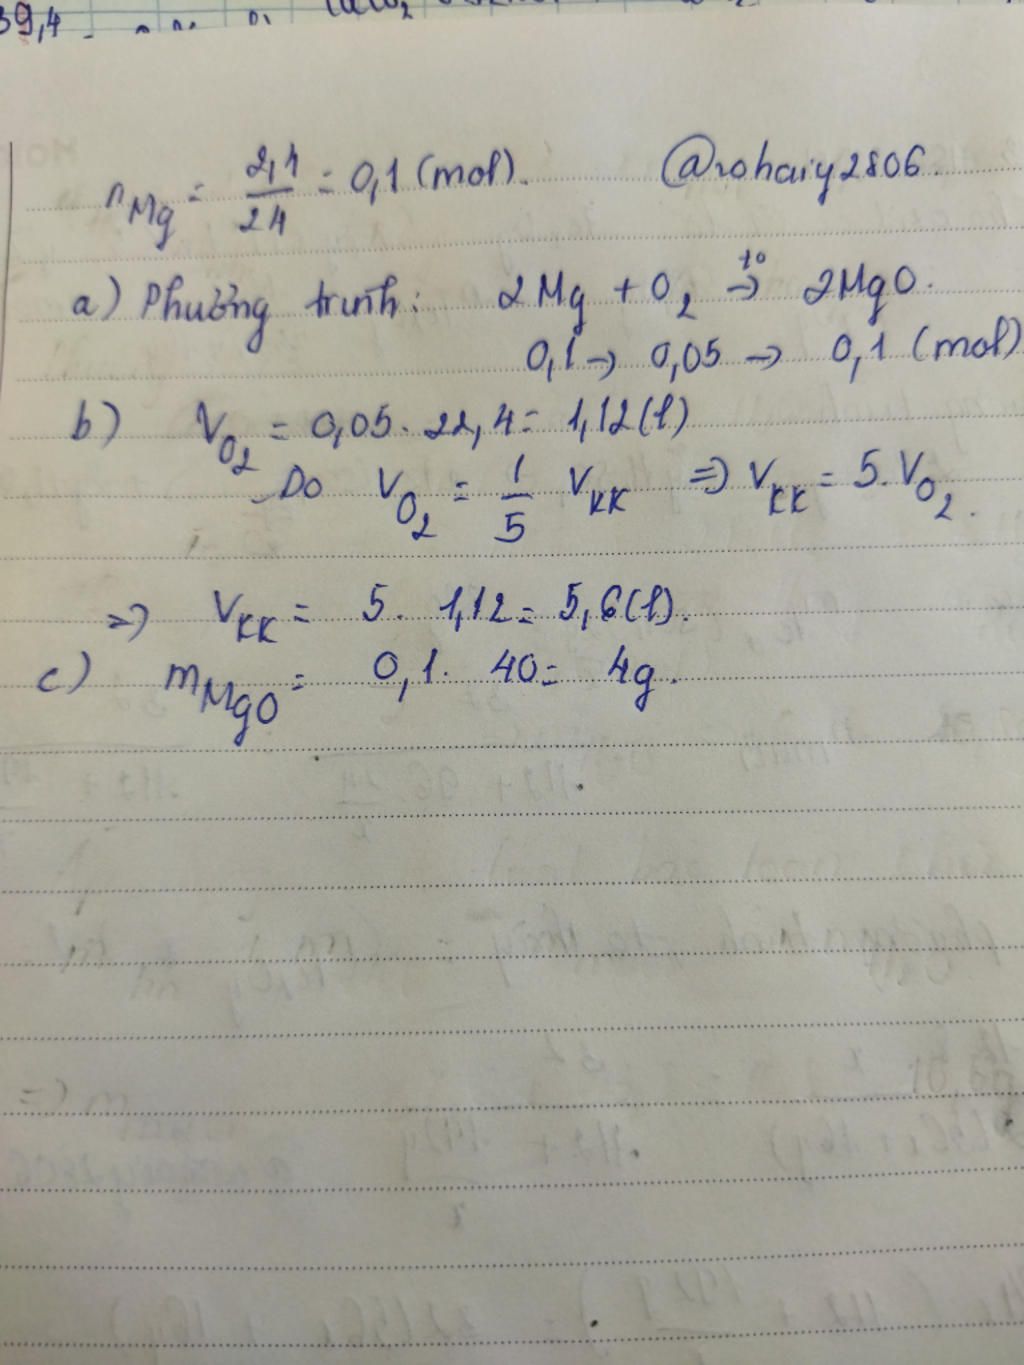 39,4
n_Mg = 2,4/24 = 0,1 (mol). @rohaiy2806.
a) Phương trình: 2Mg + O₂ t°→ 2MgO.
0,1 → 0,05 → 0,1 (mol)
b) V_O₂ = 0,05. 22,4 = 1,12 (l)
Do V_O₂ = 1/5 V_KK => V_KK = 5. V_O₂.
=> V_KK = 5. 1,12 = 5,6 (l).
c) m_MgO = 0,1. 40 = 4g.